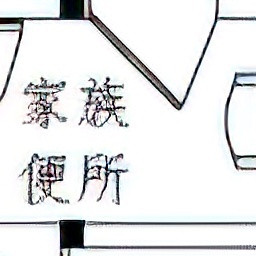 家族
便所